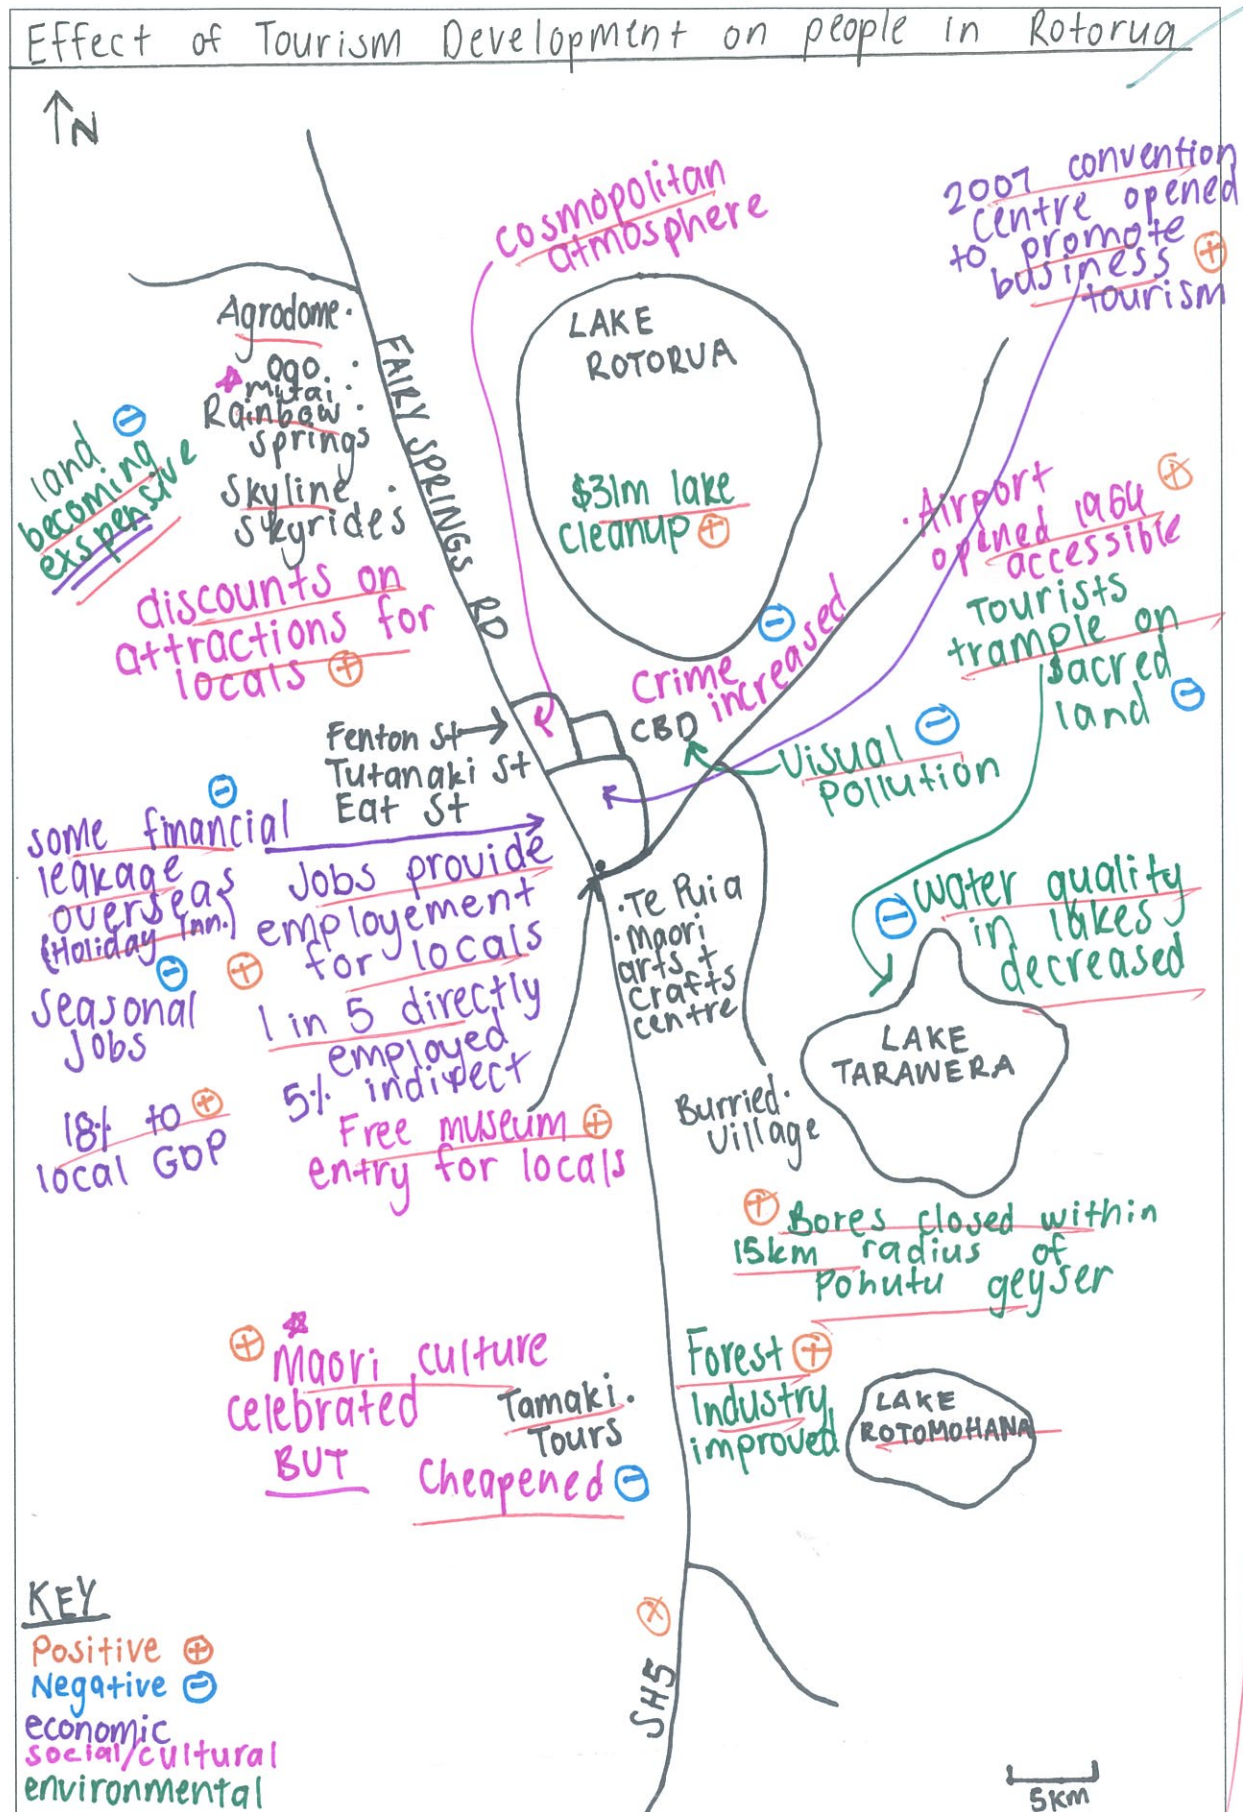 Effect of Tourism Development on people in Rotorua
N
cosmopolitan
atmosphere
2007 convention
centre opened
to promote
business
tourism
LAKE
ROTORUA
$31m lake
cleanup
Agrodome
Ogo
Mitai
Rainbow
Springs
Skyline
Skyrides
FAIRY SPRINGS RD
land
becoming
exspensive
discounts on
attractions for
locals
Airport
opened 1964
accessible
Tourists
trample on
sacred
land
Crime
increased
CBD
Visual
Pollution
Fenton St
Tutanaki St
Eat St
some financial
leakage
overseas
(Holiday Inn.)
Seasonal
Jobs
18% to
local GDP
Jobs provide
employement
for locals
1 in 5 directly
employed
5% indirect
Free museum
entry for locals
Te Puia
Maori
arts +
crafts
centre
Water quality
in lakes
decreased
LAKE
TARAWERA
Burried
Village
Bores closed within
15km radius of
Pohutu geyser
Maori culture
celebrated
BUT
Cheapened
Tamaki
Tours
Forest
Industry
improved
LAKE
ROTOMOHANA
SH5
KEY
Positive +
Negative -
economic
social/cultural
environmental
5km